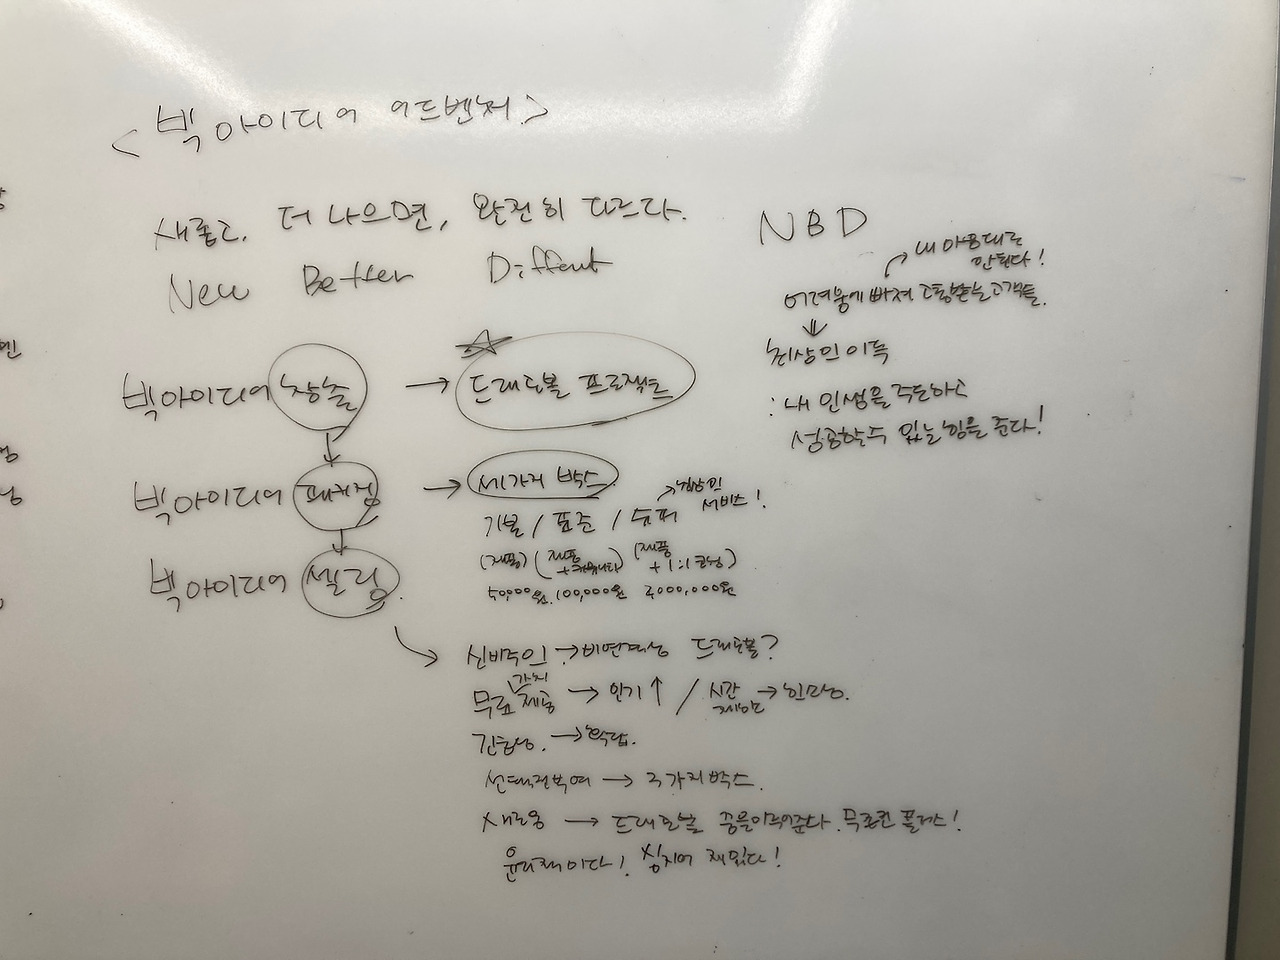 <빅 아이디어 어드벤처>
새롭고, 더 나으면, 완전히 다르다.
New Better Diffent
빅아이디어 창출 → 드래곤볼 프로젝트
빅아이디어 패키징 → 세가지 박스
기본 / 표준 / 슈퍼 → 서비스!
(제품) (제품 + 커뮤니티) (제품 + 1:1 코칭)
50,000원. 100,000원 2,000,000원
빅아이디어 셀링.
신비주의 → 비연관성 드래곤볼?
무료 가치 제공 → 인기↑ / 시간 제한 →
긴급성. →
선택권부여 → 3가지박스.
새로움 → 드래곤볼 무조건 플러스!
윤리적이다! 심지어 재밌다!
NBD
내 마음대로 안된다!
어려움에 빠져 고통받는 고객들.
최상의 이득
: 내 인생을 주도하고
성공할수 있는 힘을 준다!